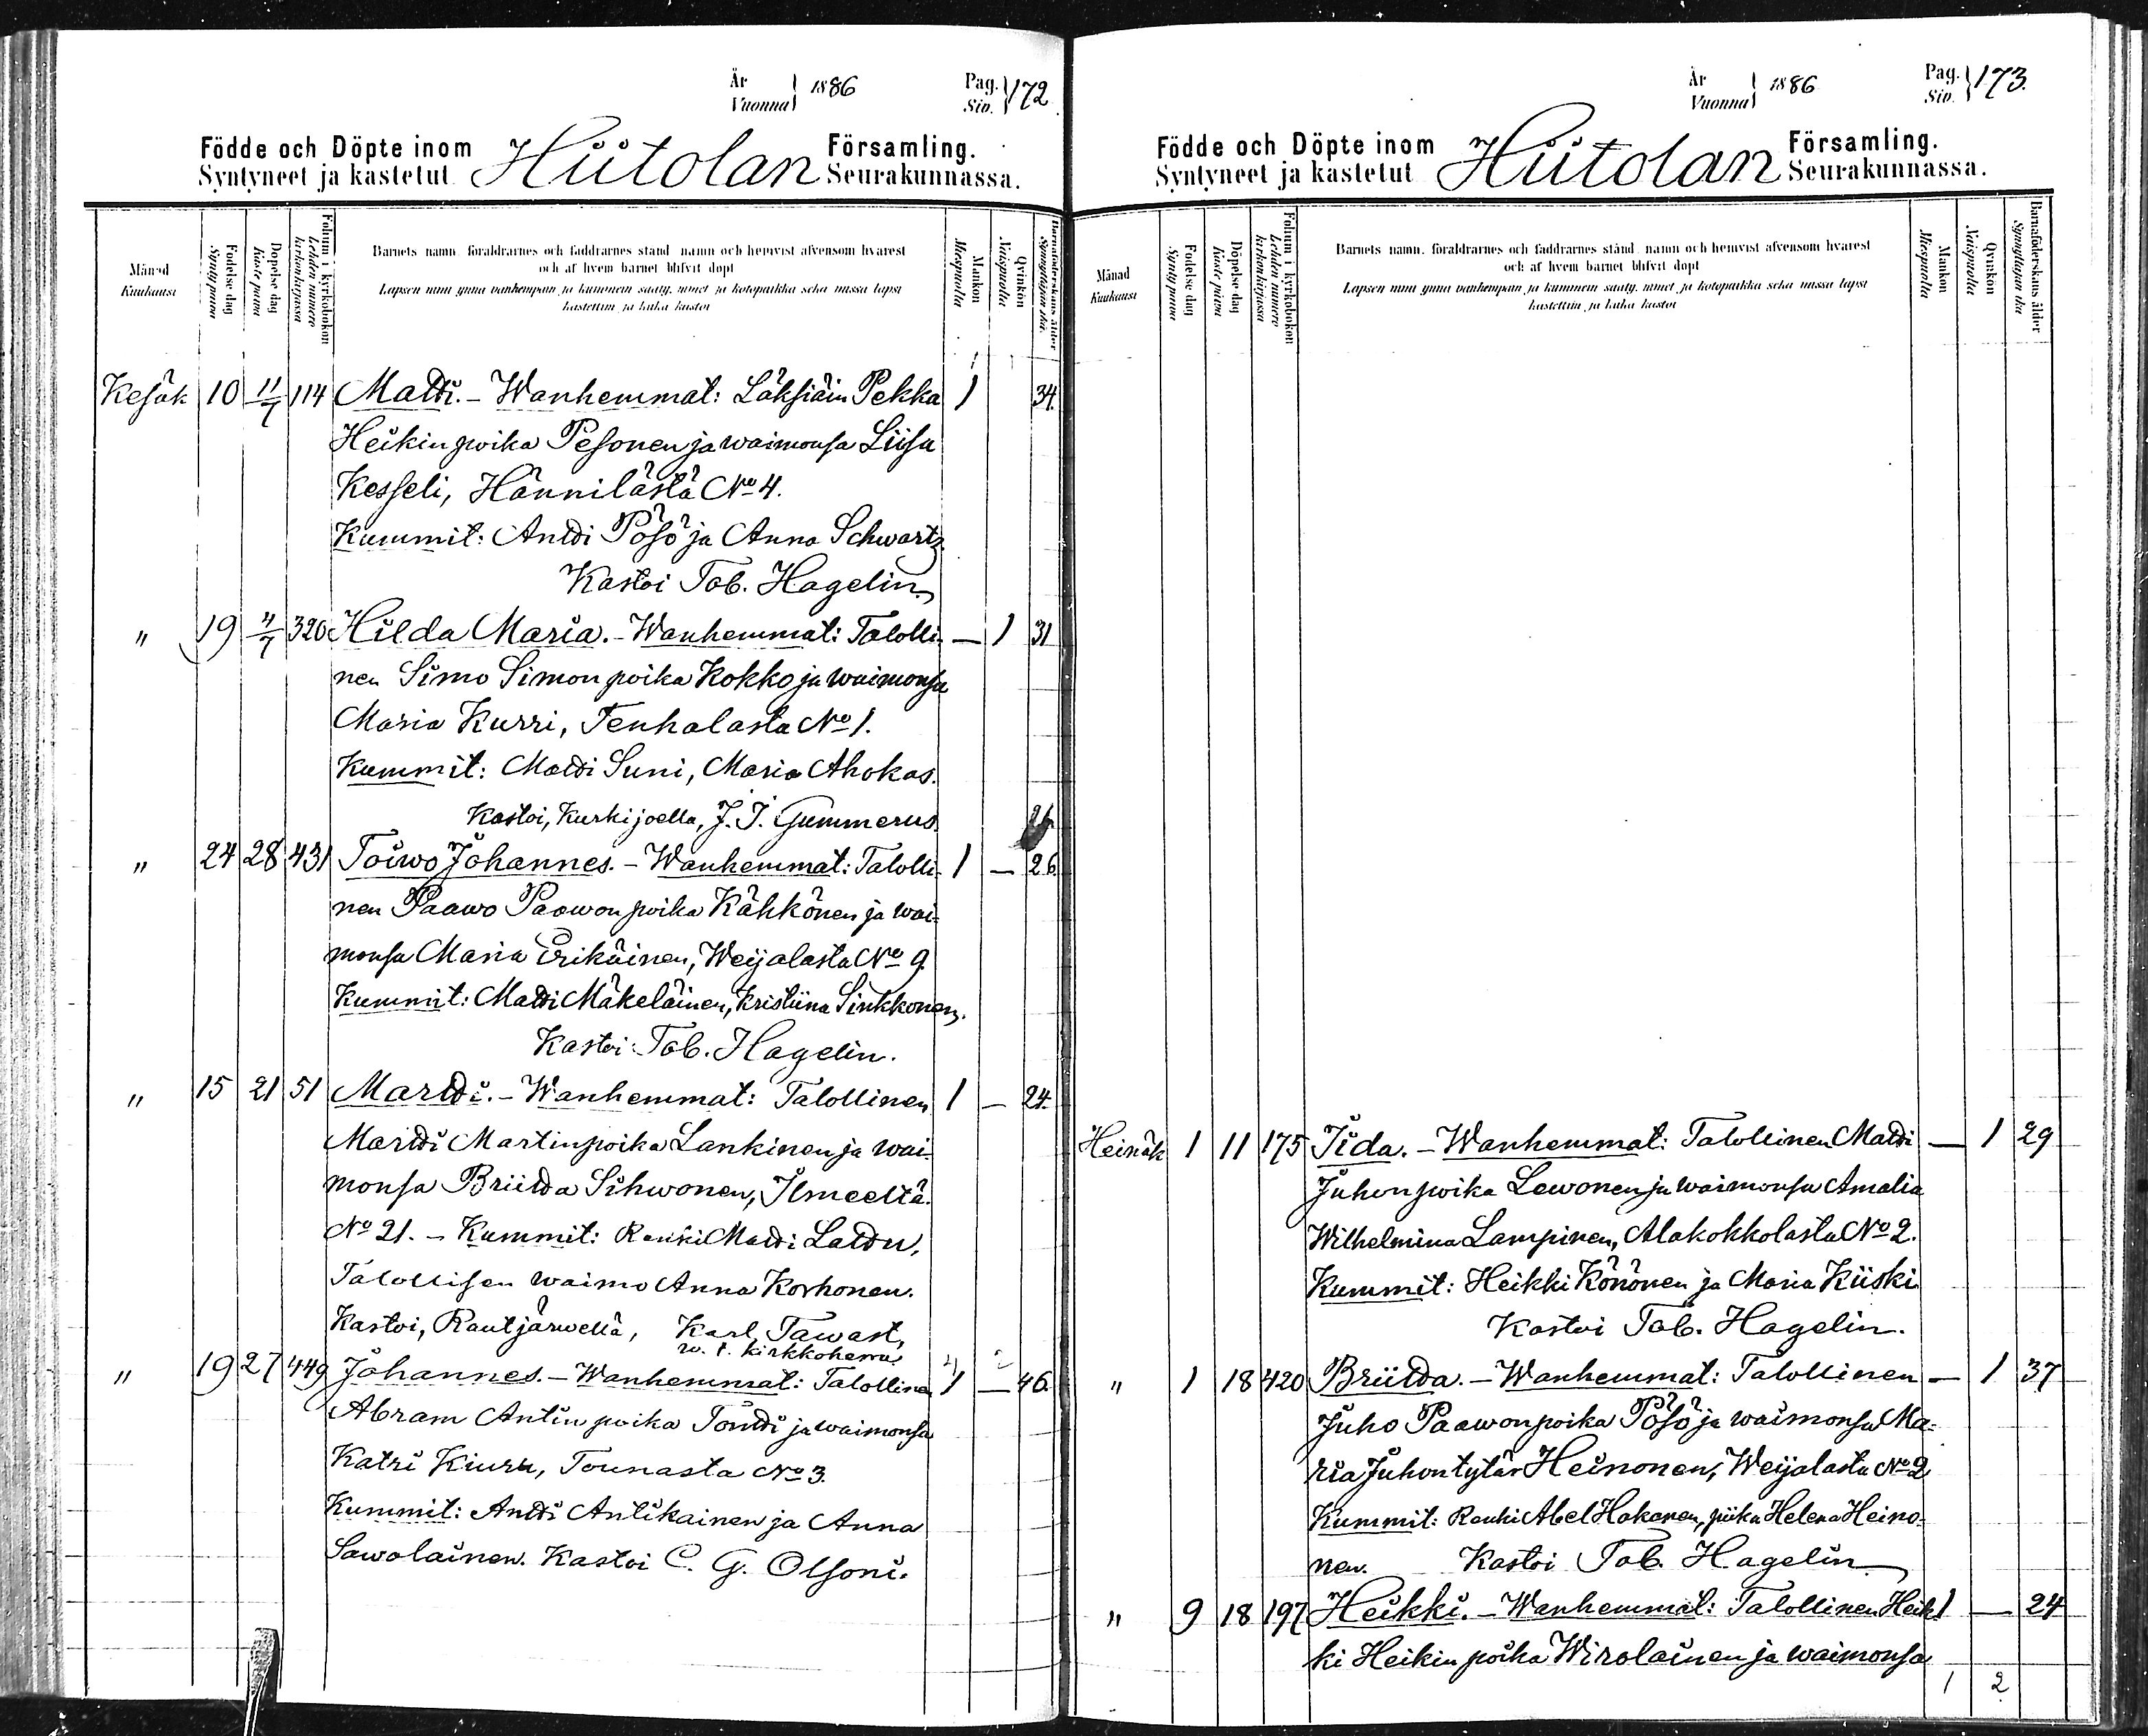 År Vuonna } 1886 Pag. Siv. } 172
Födde och Döpte inom Hiitolan Församling.
Syntyneet ja kastetut Seurakunnassa.
Månad
Kuukausi
Födelse dag
Synty päivä
Döpelse dag
Kaste päivä
Folium i kyrkoboken
Lehden numero kirkonkirjassa
Barnets namn, föräldrarnes och faddrarnes stånd, namn och hemvist äfvensom hvarest
och af hvem barnet blifvit döpt
Lapsen nimi ynnä vanhempain ja kummein sääty, nimet ja kotopaikka sekä missä lapsi
kastettiin ja kuka kastoi
Mankön
Miespuolia
Qvinkön
Naispuolia
Barnaföderskans ålder
Synnyttäjän ikä
Kesäk 10 11/7 114 Matti. – Wanhemmat: Läksiäin Pekka 1 34.
Heikinpoika Pesonen ja waimonsa Liisa
Kesseli, Hännilästä No 4.
Kummit: Antti Pösö ja Anna Schwartz.
Kastoi Tob. Hagelin.
" 19 4/7 320 Hilda Maria. – Wanhemmat: Talolli- — 1 31
nen Simo Simonpoika Kokko ja waimonsa
Maria Kurri, Tenhalasta No 1.
Kummit: Matti Suni, Maria Ahokas.
Kastoi, Kurkijoella, J. I. Gummerus.
" 24 28 431 Toiwo Johannes. – Wanhemmat: Talolli- 1 — 26.
nen Paawo Paawonpoika Kähkönen ja wai-
monsa Maria Erikäinen, Weijalasta No 9.
Kummit: Matti Mäkeläinen, Kristiina Sinkkonen.
Kastoi: Tob. Hagelin.
" 15 21 51 Martti. – Wanhemmat: Talollinen 1 — 24.
Martti Martinpoika Lankinen ja wai-
monsa Briitta Sihwonen, Ilmeeltä
No 21. – Kummit: Renki Matti Lattu,
Talollisen waimo Anna Korhonen.
Kastoi, Rautjärwellä, Karl Tawast,
w. t. kirkkoherra
" 19 27 449 Johannes. – Wanhemmat: Talollinen 1 — 46.
Abram Antinpoika Tontti ja waimonsa
Katri Kiuru, Tounasta No 3.
Kummit: Antti Antikainen ja Anna
Sawolainen. Kastoi C. G. Olsoni.
År Vuonna } 1886 Pag. Siv. } 173.
Födde och Döpte inom Hiitolan Församling.
Syntyneet ja kastetut Seurakunnassa.
Månad
Kuukausi
Födelse dag
Synty päivä
Döpelse dag
Kaste päivä
Folium i kyrkoboken
Lehden numero kirkonkirjassa
Barnets namn, föräldrarnes och faddrarnes stånd, namn och hemvist äfvensom hvarest
och af hvem barnet blifvit döpt
Lapsen nimi ynnä vanhempain ja kummein sääty, nimet ja kotopaikka sekä missä lapsi
kastettiin ja kuka kastoi
Mankön
Miespuolia
Qvinkön
Naispuolia
Barnaföderskans ålder
Synnyttäjän ikä
Heinäk 1 11 175 Iida. – Wanhemmat: Talollinen Matti — 1 29
Juhonpoika Lewonen ja waimonsa Amalia
Wilhelmina Lampinen, Alakokkolasta No 2.
Kummit: Heikki Könönen ja Maria Kiiski
Kastoi Tob. Hagelin.
" 1 18 420 Briitta. – Wanhemmat: Talollinen — 1 37
Juho Paawonpoika Pösö ja waimonsa Ma-
ria Juhontytär Heinonen, Weijalasta No 2
Kummit: Renki Abel Hakanen, piika Helena Heino-
nen. Kastoi Tob. Hagelin
" 9 18 197 Heikki. – Wanhemmat: Talollinen Heik- 1 — 24
ki Heikinpoika Wirolainen ja waimonsa
1 2